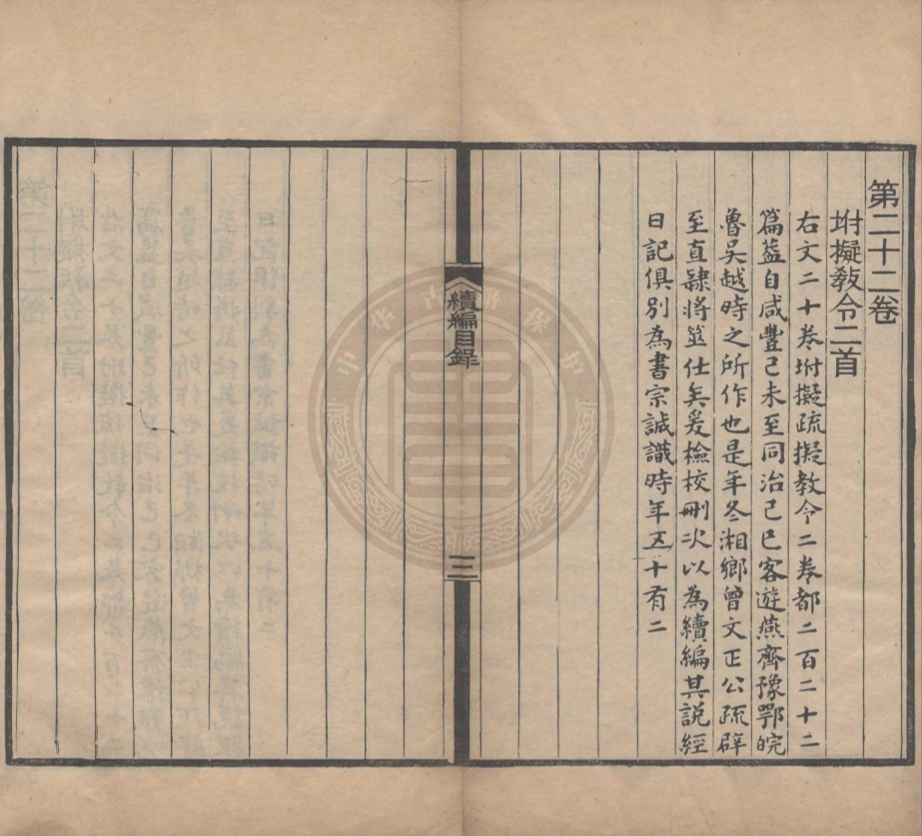 第二十二卷
坿擬敎令二首
右文二十卷坿擬疏擬教令二卷都二百二十二
篇葢自咸豐己未至同治己巳客遊燕齊豫鄂皖
魯吳越時之所作也是年冬湘鄉曾文正公疏辟
至直隸將筮仕矣爰檢校刪次以為續編其說經
日記俱別為書宗誠識時年五十有二
續編目錄
三